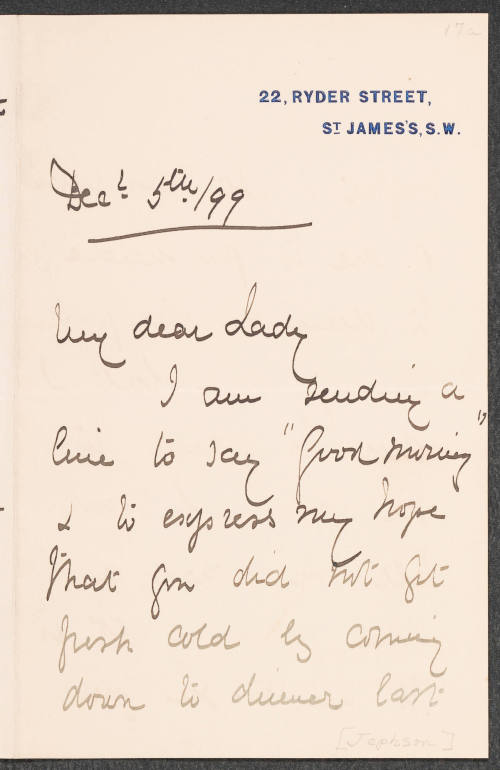 17a
22, RYDER STREET,
ST JAMES'S, S.W.
Decr 5th/99
My dear Lady
I am sending a
line to say "Good morning"
& to express my hope
that you did not get
fresh cold by coming
down to dinner last
[Jephson]